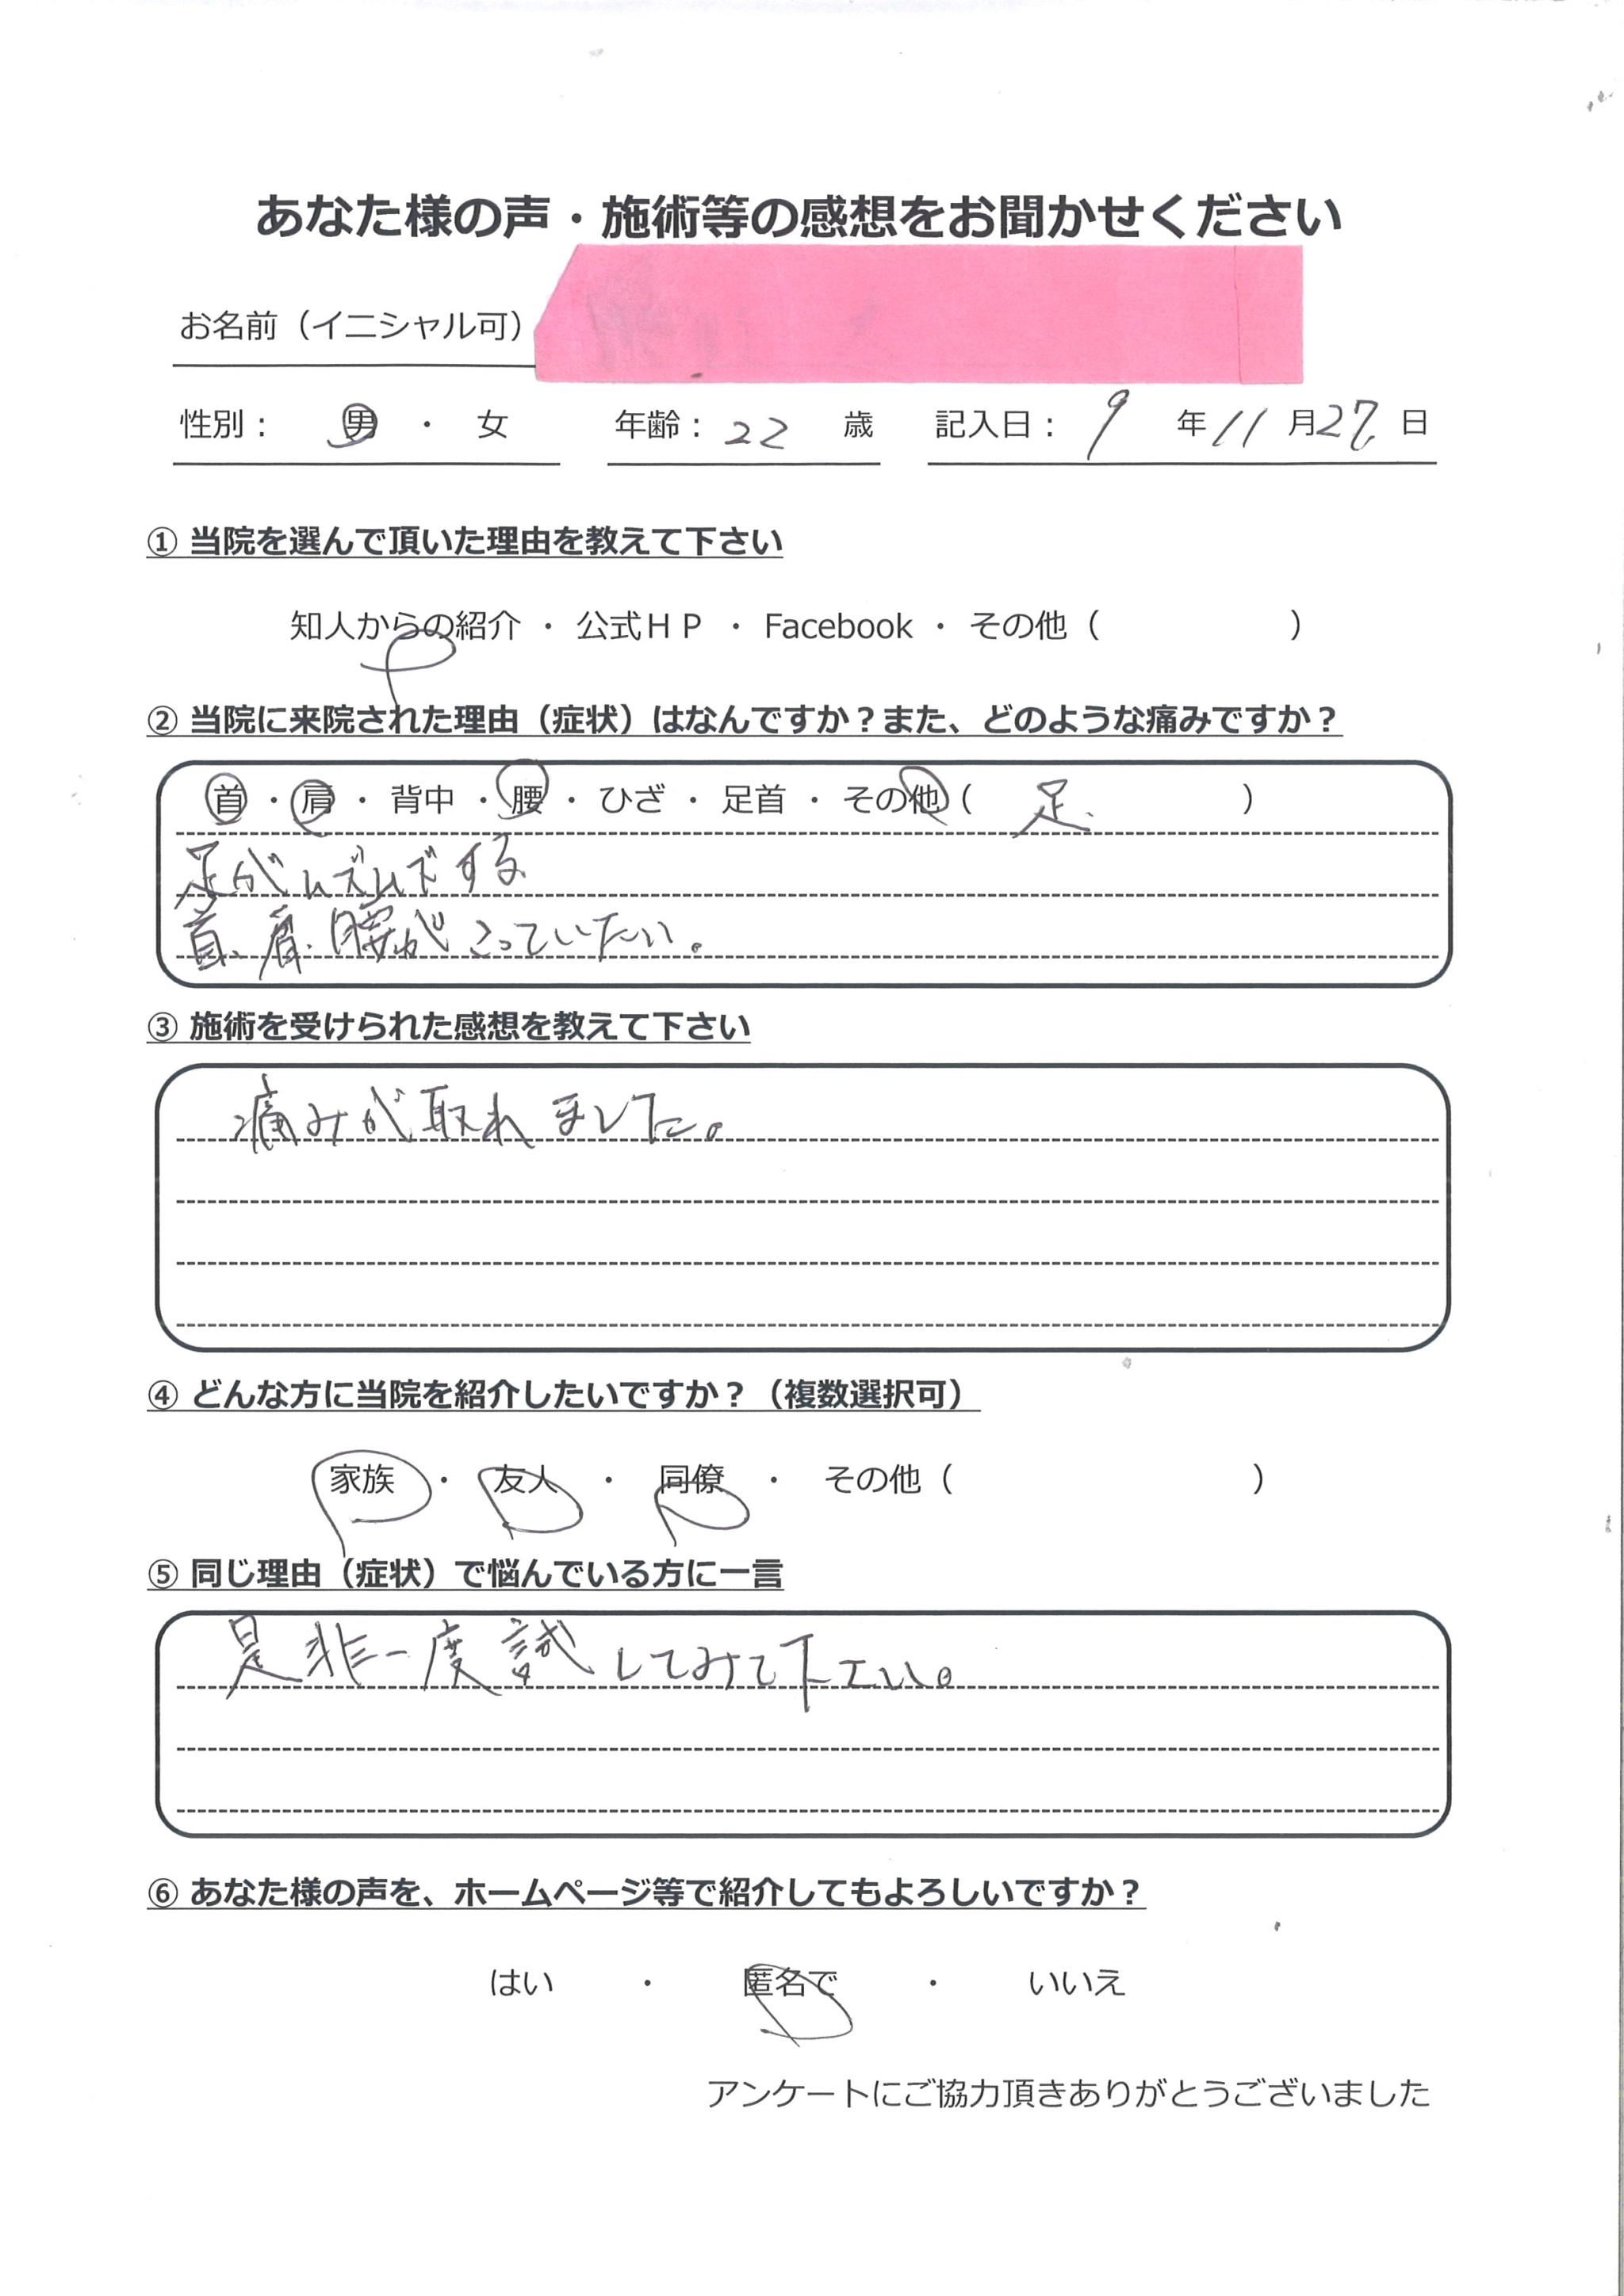 あなた様の声・施術等の感想をお聞かせください
お名前（イニシャル可）
性別： 男 ・ 女 年齢：22 歳 記入日：9 年 11 月 27 日
① 当院を選んで頂いた理由を教えて下さい
知人からの紹介 ・ 公式ＨＰ ・ Facebook ・ その他（ ）
② 当院に来院された理由（症状）はなんですか？また、どのような痛みですか？
首 ・ 肩 ・ 背中 ・ 腰 ・ ひざ ・ 足首 ・ その他（ 足 ）
足がムズムズする
首、肩、腰がこっていたい。
③ 施術を受けられた感想を教えて下さい
痛みが取れました。
④ どんな方に当院を紹介したいですか？（複数選択可）
家族 ・ 友人 ・ 同僚 ・ その他（ ）
⑤ 同じ理由（症状）で悩んでいる方に一言
是非一度試してみて下さい。
⑥ あなた様の声を、ホームページ等で紹介してもよろしいですか？
はい ・ 匿名で ・ いいえ
アンケートにご協力頂きありがとうございました